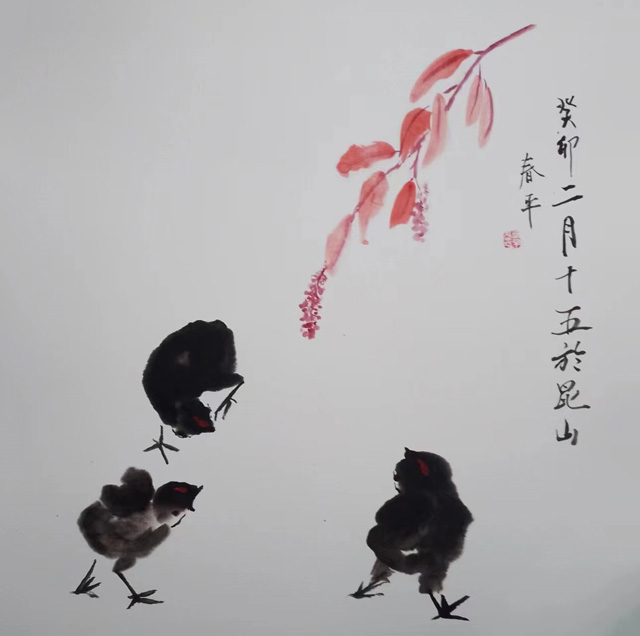 癸卯二月十五於昆山
春平